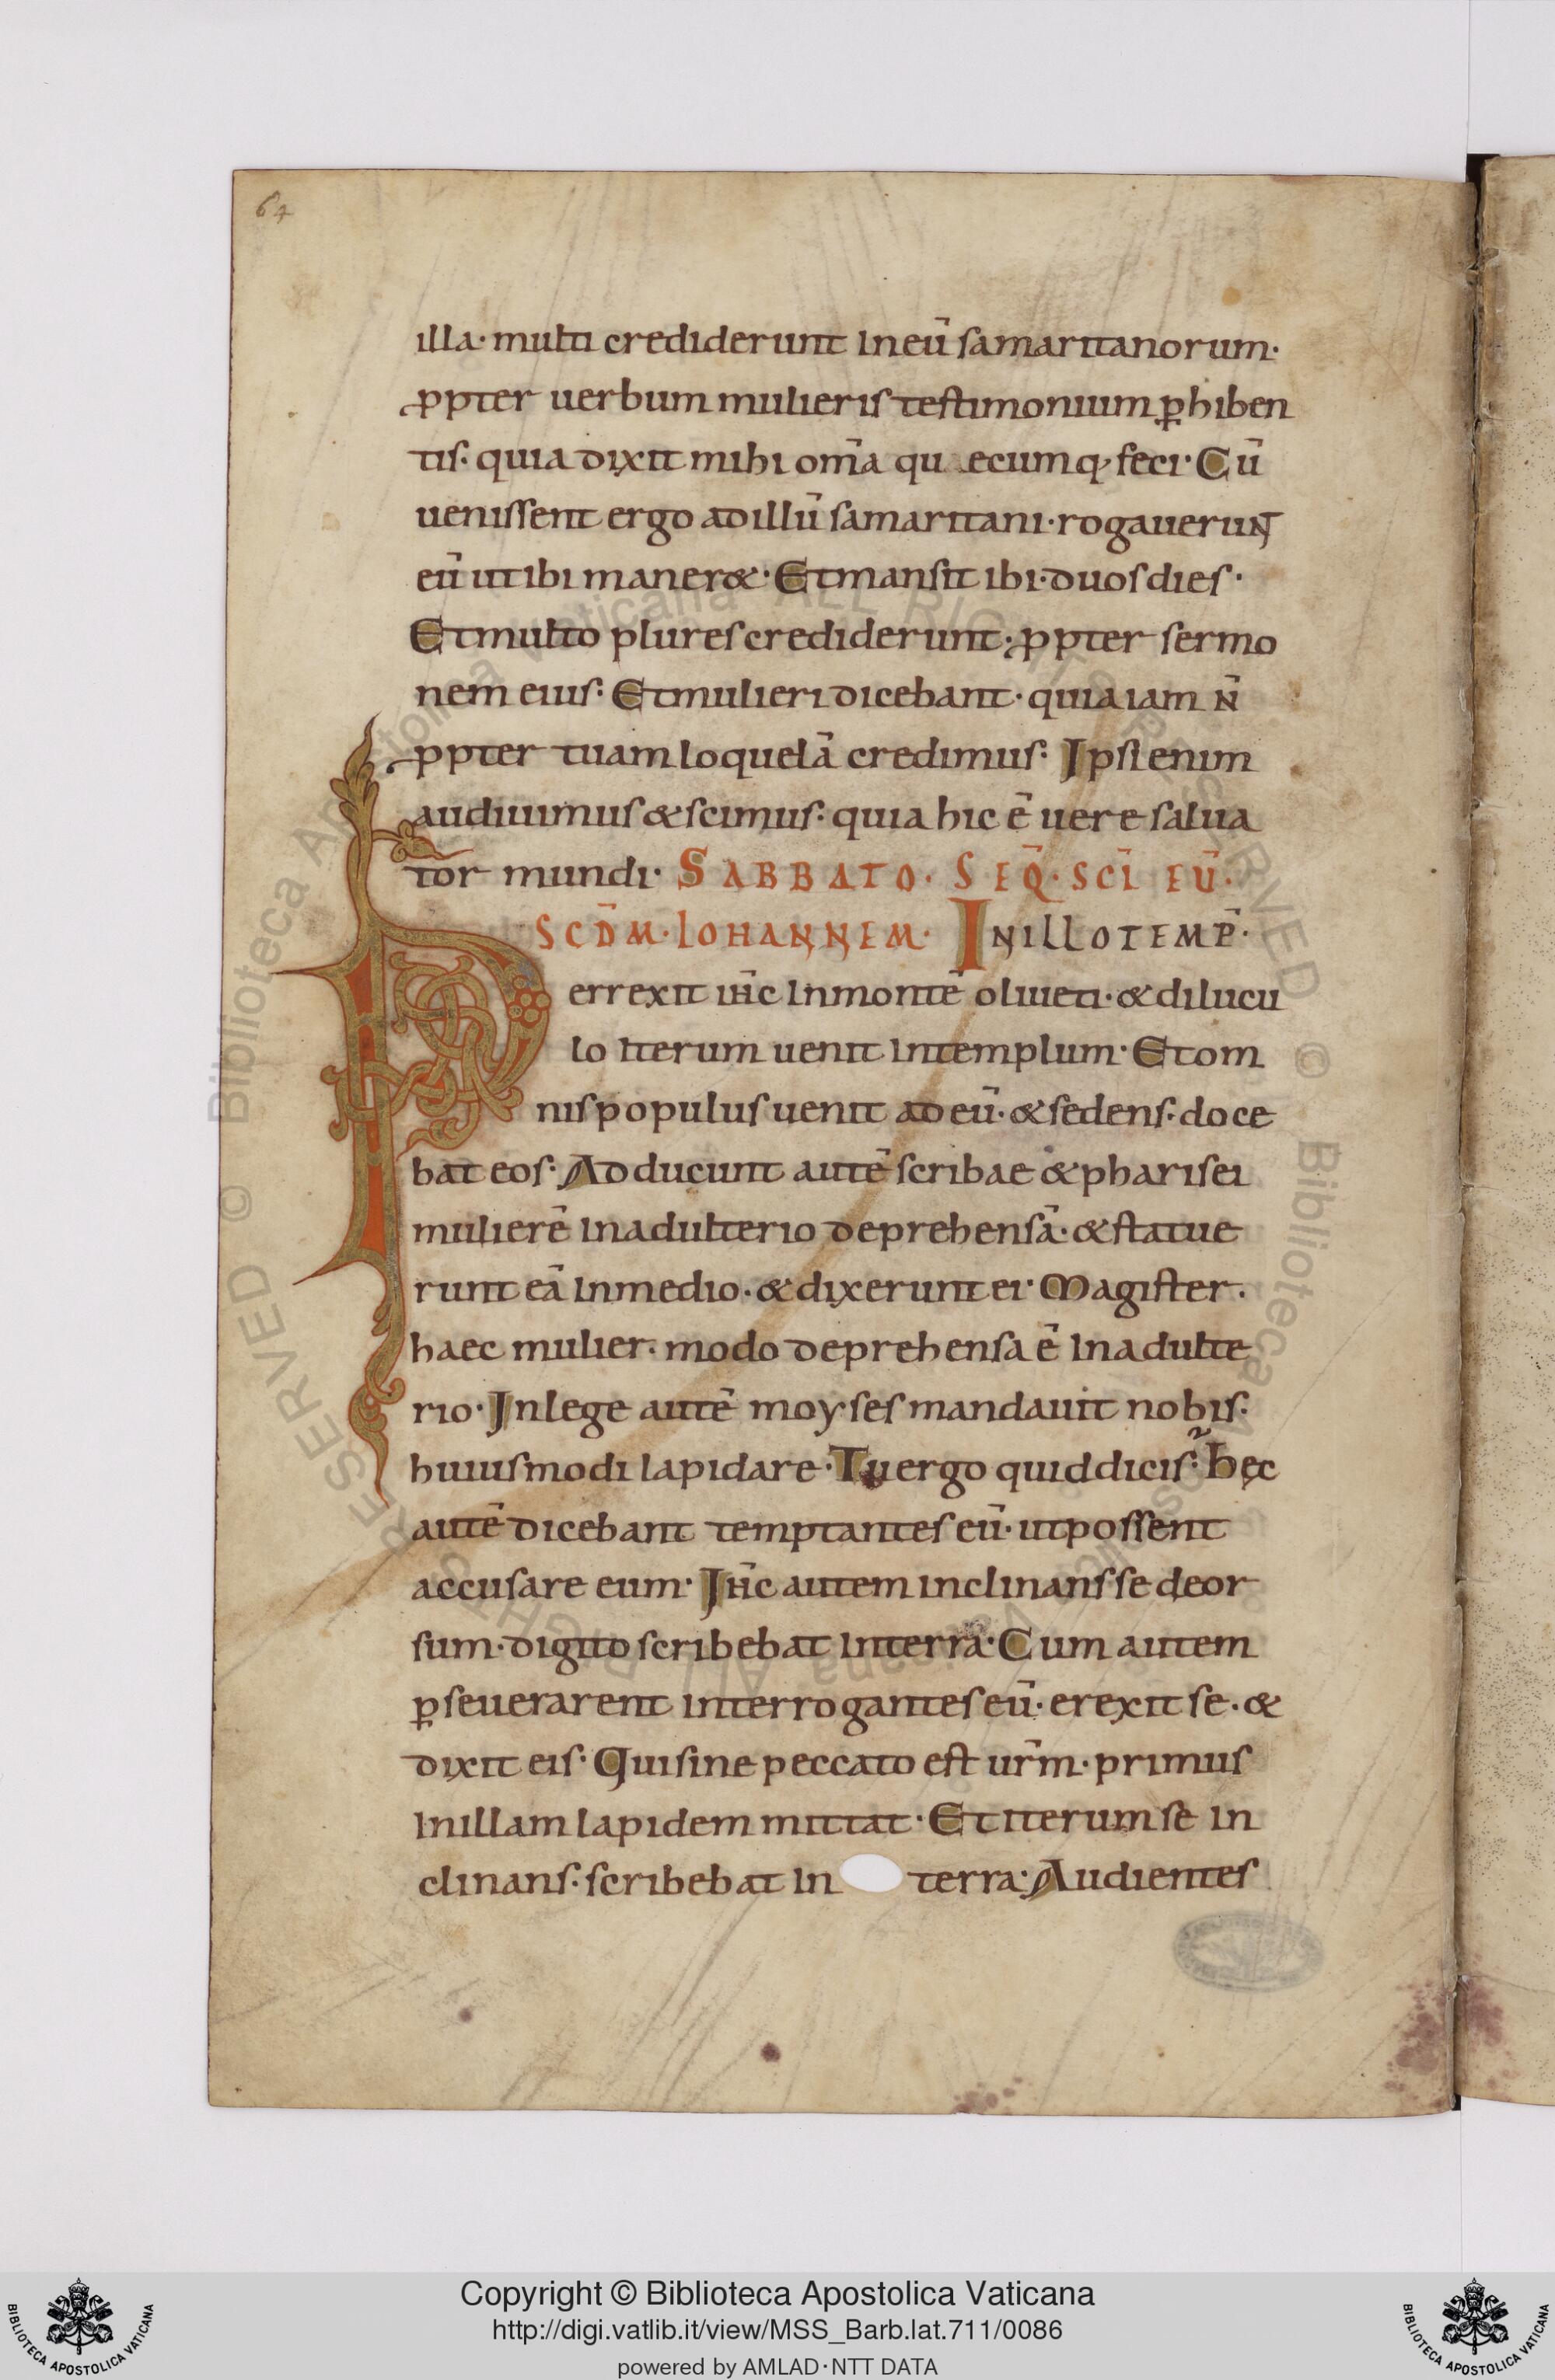 64
illa· multi crediderunt ineū samaritanorum·
ꝓpter uerbum mulieris testimonium ꝑhiben
tis· quia dixit mihi om̄a quaecumq; feci· Cū
uenissent ergo adillū samaritani· rogauerunt
eū ut ibi maner&· Et mansit ibi· duos dies·
Et multo plures crediderunt· ꝓpter sermo
nem eius· Et mulieri dicebant· quia iam n̄
ꝓpter tuam loquelā credimus· Ipsi enim
audiuimus & scimus· quia hic ē uere salua
tor mundi· SABBATO· SEQ̄· SCĪ EŪ·
SCD̄M· IOHANNEM· IN ILLO TEMP̄·
Perrexit ih̄c in montē oliueti· & dilucu
lo iterum uenit in templum· Et om
nis populus uenit ad eū· & sedens· doce
bat eos· Adducunt autē scribae & pharisei
mulierē in adulterio deprehensā· & statue
runt eā in medio· & dixerunt ei· Magister·
haec mulier· modo deprehensa ē in adulte
rio· In lege autē moyses mandauit nobis·
huiusmodi lapidare· Tu ergo quid dicis? hęc
autē dicebant temptantes eū· ut possent
accusare eum· Ih̄c autem inclinans se deor
sum· digito scribebat in terra· Cum autem
ꝑseuerarent interrogantes eū· erexit se· &
dixit eis· Qui sine peccato est ur̄m· primus
in illam lapidem mittat· Et iterum se in
clinans· scribebat in terra· Audientes
Copyright © Biblioteca Apostolica Vaticana
http://digi.vatlib.it/view/MSS_Barb.lat.711/0086
powered by AMLAD·NTT DATA
BIBLIOTECA APOSTOLICA VATICANA
BIBLIOTECA APOSTOLICA VATICANA